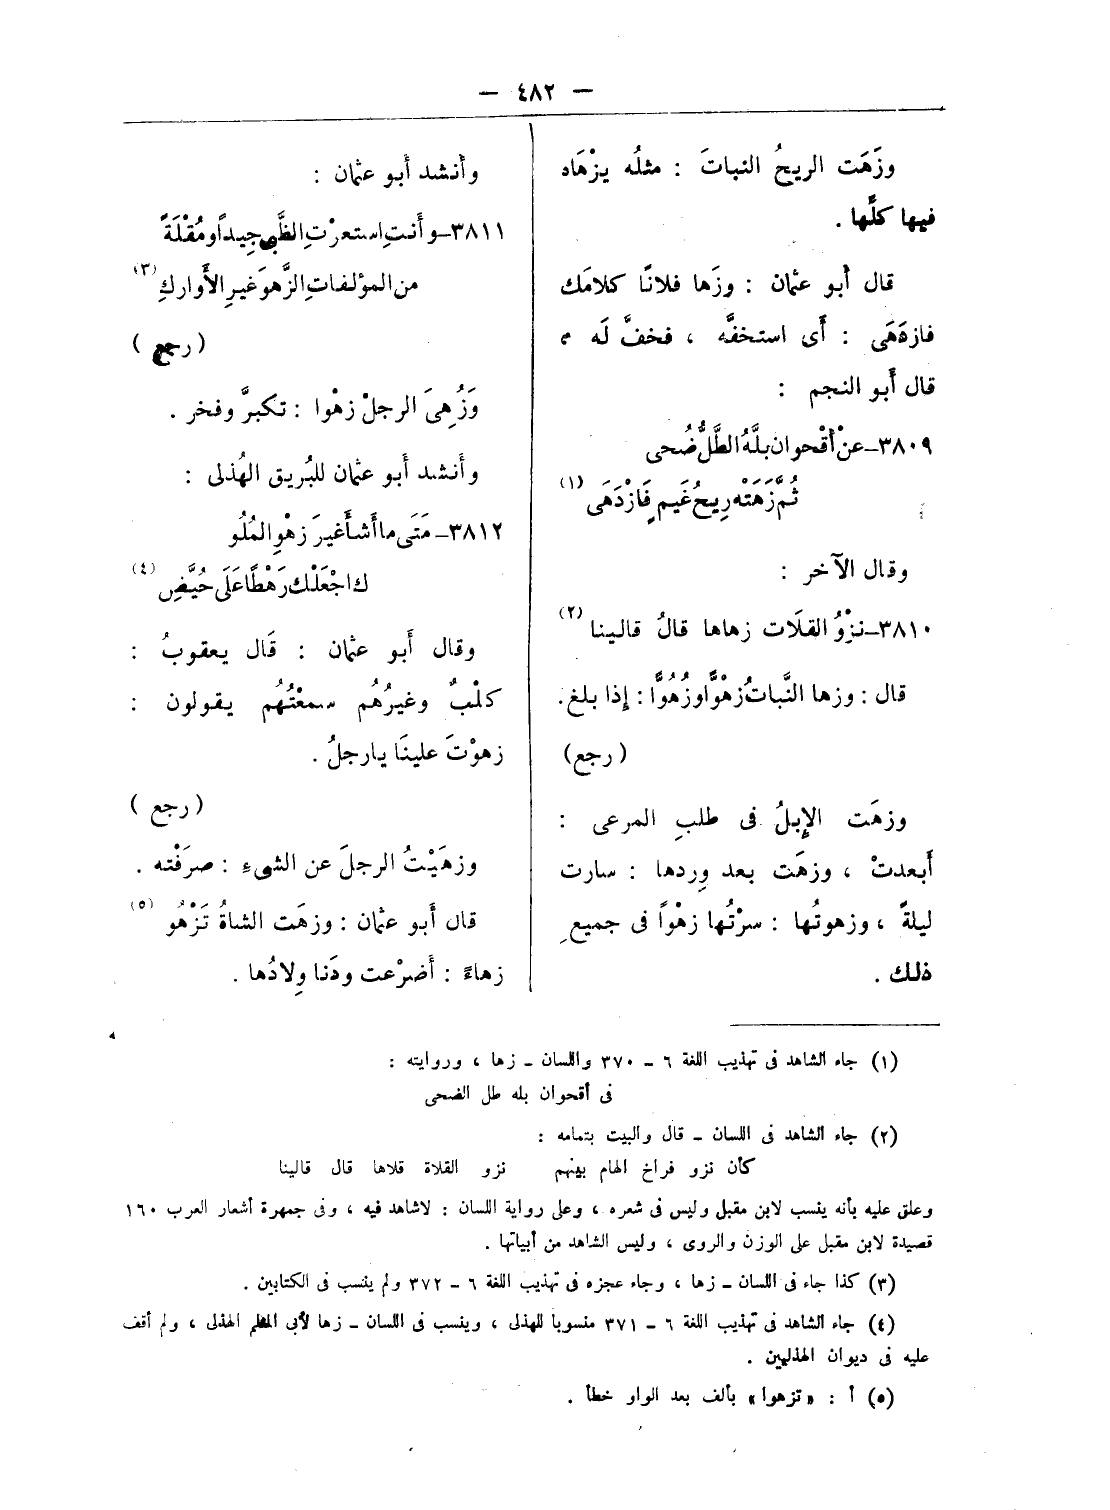 — ٤٨٢ —
وزَهَت الريحُ النباتَ : مثلُه يزْهَاه
فيها كلِّها .
قال أبو عثمان : وزَها فلانًا كلامَك
فازدَهَى : أَى استخفَّه ، فخفَّ لَه م
قال أَبو النجم :
٣٨٠٩ــ عنْ أُقْحوان بلَّهُ الطَّلُّ ضُحى
ثُمَّ زَهَتْه رِيحُ غَيمٍ فَازْدَهَى (١)
وقال الآخر :
٣٨١٠ــ نزْوُ القلَات زهاها قالُ قالينا (٢)
قال : وزها النَّباتُ زهْوًّا وزُهُوًّا : إِذا بلغ.
( رجع)
وزهَت الإِبلُ فى طلبِ المرعى :
أَبعدتْ ، وزهَت بعد وِردها : سارت
ليلةً ، وزهوتُها : سرْتُها زهْواً فى جميعِ
ذلك .
وأنشد أبو عثمان :
٣٨١١ــ وأَنتِ استعرْتِ الظَّبىَ جِيداً ومُقْلَةً
من المؤلفاتِ الزَّهوَ غيرِ الأَوارِكِ (٣)
( رجع )
وَزُهِىَ الرجلُ زهْوا : تكبرَّ وفخر .
وأَنشد أَبو عثمان للبُريق الهُذلى :
٣٨١٢ــ مَتَى ما أَشأ غيرَ زهْوِ المُلُو
ك اجْعَلْك رَهْطًا عَلَى حُيَّضِ (٤)
وقال أَبو عثمان : قَال يعقوبُ :
كلْبٌ وغيرُهُم سمعْتُهُم يقولون :
زهوْتَ علينَا يارجلُ .
( رجع )
وزهَيْتُ الرجلَ عن الشىءِ : صرَفْته .
قال أَبو عثمان : وزهَت الشاةُ تَزْهُو (٥)
زهاءً : أَضرْعت ودَنا وِلادُها .
(١) جاء الشاهد فى تهذيب اللغة ٦ ــ ٣٧٠ واللسان ــ زها ، وروايته :
فى أقحوان بله طل الضحى
(٢) جاء الشاهد فى اللسان ــ قال والبيت بتمامه :
كأن نزو فراخ الهام بينهم نزو القلاة قلاها قال قالينا
وعلق عليه بأنه ينسب لابن مقبل وليس فى شعره ، وعلى رواية اللسان : لاشاهد فيه ، وفى جمهرة أشعار العرب ١٦٠
قصيدة لابن مقبل على الوزن والروى ، وليس الشاهد من أبياتها .
(٣) كذا جاء فى اللسان ــ زها ، وجاء عجزه فى تهذيب اللغة ٦ ــ ٣٧٢ ولم ينسب فى الكتابين .
(٤) جاء الشاهد فى تهذيب اللغة ٦ ــ ٣٧١ منسوباً للهذلى ، وينسب فى اللسان ــ زها لأبى المثلم الهذلى ، ولم أقف
عليه فى ديوان الهذليين .
(٥) أ : «تزهوا» بألف بعد الواو خطأ .